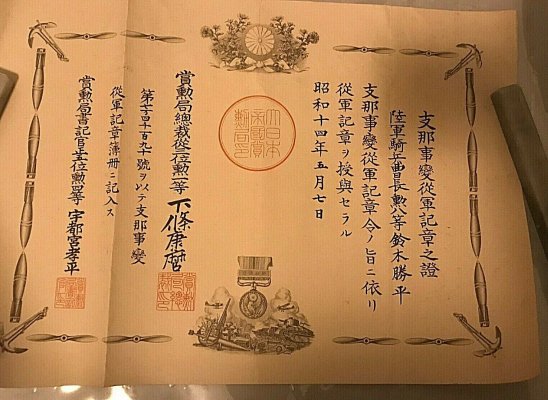 支那事變從軍記章之證
陸軍騎兵曹長勲八等鈴木勝平
支那事變從軍記章令ノ旨ニ依リ
從軍記章ヲ授與セラル
昭和十四年五月七日
大日本
帝國賞
勲局印
賞勲局總裁從三位勲一等 下條康麿
第 號ヲ以テ支那事變
從軍記章簿冊ニ記入ス
賞勲局書記官正五位勲四等 宇都宮孝平